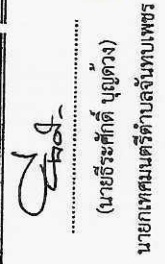 (นายธีระศักดิ์ บุญด้วง)
นายกเทศมนตรีตำบลจันทบเพชร